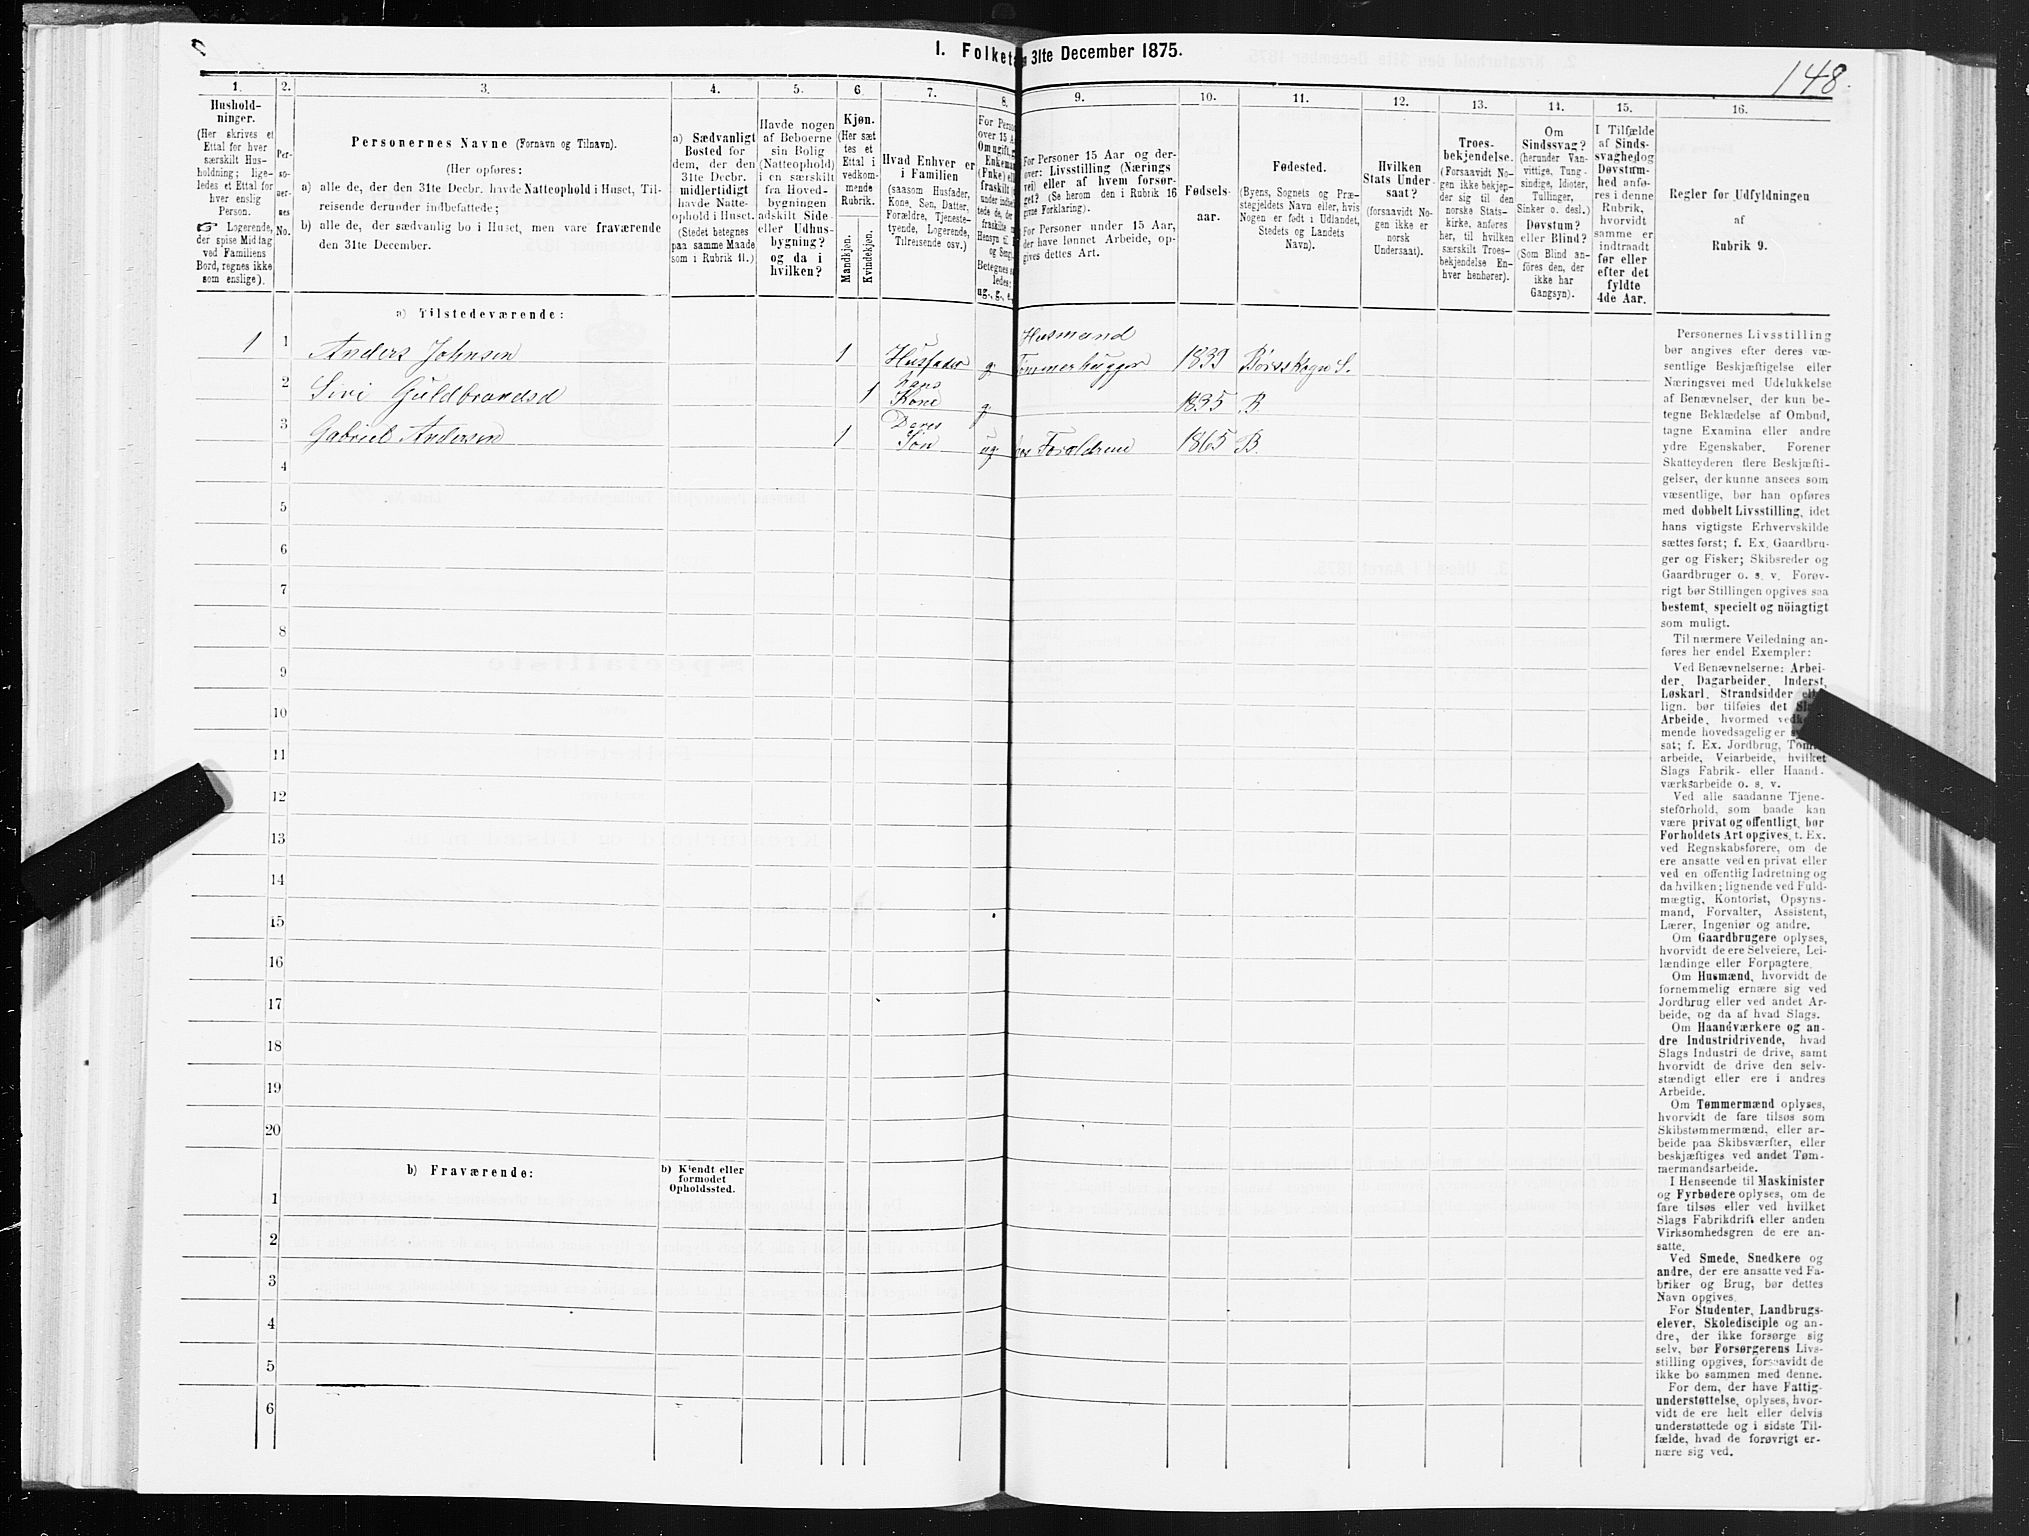 I. Folket
n 31te December 1875.
148.
1.
2.
3.
4.
5.
6.
7.
8.
9.
10.
11.
12.
13.
14.
15.
16.
Hushold-
ninger.
(Her skrives et
Ettal for hver
særskilt Hus-
holdning; lige-
ledes et Ettal for
hver enslig
Person.
☞ Logerende,
der spise Middag
ved Familiens
Bord, regnes ikke
som enslige).
Per-
so-
ner-
nes
No.
Personernes Navne (Fornavn og Tilnavn).
(Her opføres:
a) alle de, der den 31te Decbr. havde Natteophold i Huset, Til-
reisende derunder indbefattede;
b) alle de, der sædvanlig bo i Huset, men vare fraværende
den 31te December.
a) Sædvanligt
Bosted for
dem, der den
31te Decbr.
midlertidigt
havde Natte-
ophold i Huset.
(Stedet betegnes
paa samme Maade
som i Rubrik 11.)
Havde nogen
af Beboerne
sin Bolig
(Natteophold)
i en særskilt
fra Hoved-
bygningen
adskilt Side-
eller Udhus-
bygning?
og da i
hvilken?
Kjøn.
(Her sæt
tes et
Ettal i
vedkom-
mende
Rubrik.
Mandkjøn.
Kvindekjøn.
Hvad Enhver er
i Familien
(saasom Husfader,
Kone, Søn, Datter,
Forældre, Tjeneste-
tyende, Logerende,
Tilreisende osv.)
For Perso
over 15 Aa
Om ugift, g
Enkema
(Enke) ell
fraskilt (
under indbe
tede de, der
fraskilte m
Hensyn til
og Seng
Betegnes s
ledes:
ug., g., e.,
For Personer 15 Aar og der-
over: Livsstilling (Nærings
vei) eller af hvem forsør-
get? (Se herom den i Rubrik 16
givne Forklaring).
For Personer under 15 Aar,
der have lønnet Arbeide, op-
gives dettes Art.
Fødsels-
aar.
Fødested.
(Byens, Sognets og Præ-
stegjeldets Navn eller, hvis
Nogen er født i Udlandet,
Stedets og Landets
Navn).
Hvilken
Stats Under
saat?
(forsaavidt No-
gen ikke er
norsk
Undersaat).
Troes-
bekjendelse.
(Forsaavidt No-
gen ikke bekjen-
der sig til den
norske Stats-
kirke, anføres
her, til hvilken
særskilt Troes-
bekjendelse En-
hver henhører).
Om
Sindssvag?
(herunder Van-
vittige, Tung-
sindige, Idioter,
Tullinger,
Sinker o. desl.)
Døvstum?
eller Blind?
(Som Blind an-
føres den, der
ikke har
Gangsyn).
I Tilfælde
af Sinds-
svaghed og
Døvstum-
hed anfø-
res i denne
Rubrik,
hvorvidt
samme er
indtraadt
før eller
efter det
fyldte
4de Aar.
Regler for Udfyldningen
af
Rubrik 9.
a) Tilstedeværende:
1 1 Anders Johnsen 1 Husfader g. Husmand
Tømmerhugger 1839 Børsskogn S.
2 Siri Guldbrandsd 1 hans
Kone g. 1835 B.
3 Gabriel Andersen 1 Deres
Søn ug. hos Forældrene 1865 B.
4
5
6
7
8
9
10
11
12
13
14
15
16
17
18
19
20
b) Fraværende:
b) Kjendt eller
formodet
Opholdssted.
1
2
3
4
5
6
Personernes Livsstilling
bør angives efter deres væ-
sentlige Beskjæftigelse eller
Næringsvei med Udelukkelse
af Benævnelser, der kun be-
tegne Beklædelse af Ombud,
tagne Examina eller andre
ydre Egenskaber. Forener
Skatteyderen flere Beskjæfti-
gelser, der kunne ansees som
væsentlige, bør han opføres
med dobbelt Livsstilling, idet
hans vigtigste Erhvervskilde
sættes først; f. Ex. Gaardbru-
ger og Fisker; Skibsreder og
Gaardbruger o. s. v. Forøv-
rigt bør Stillingen opgives saa
bestemt, specielt og nöiagtigt
som muligt.
Til nærmere Veiledning an-
føres her endel Exempler:
Ved Benævnelserne: Arbei-
der, Dagarbeider, Inderst,
Løskarl, Strandsidder eller
lign. bør tilføies det Slags
Arbeide, hvormed vedkom-
mende hovedsagelig er syssel-
sat; f. Ex. Jordbrug, Tømmer-
arbeide, Veiarbeide, hvilket
Slags Fabrik- eller Haand-
værksarbeide o. s. v.
Ved alle saadanne Tjene-
steforhold, som baade kan
være privat og offentligt, bør
Forholdets Art opgives, t. Ex.
ved Regnskabsførere, om de
ere ansatte ved en privat eller
ved en offentlig Indretning og
da hvilken; lignende ved Fuld-
mægtig, Kontorist, Opsyns-
mand, Forvalter, Assistent,
Lærer, Ingeniør og andre.
Om Gaardbrugere oplyses,
hvorvidt de ere Selveiere, Lei-
lændinge eller Forpagtere.
Om Husmænd, hvorvidt de
fornemmelig ernære sig ved
Jordbrug eller ved andet Ar-
beide, og da af hvad Slags.
Om Haandværkere og an-
dre Industridrivende, hvad
Slags Industri de drive, samt
hvorvidt de drive den selv-
stændigt eller ere i andres
Arbeide.
Om Tømmermænd oplyses,
hvorvidt de fare tilsøs som
Skibstømmermænd, eller ar-
beide paa Skibsværfter, eller
beskjæftiges ved andet Tøm-
mermandsarbeide.
I Henseende til Maskinister
og Fyrbødere oplyses, om de
fare tilsøs eller ved hvilket
Slags Fabrikdrift eller anden
Virksomhedsgren de ere an-
satte.
Ved Smede, Snedkere og
andre, der ere ansatte ved Fa-
briker og Brug, bør dettes
Navn opgives.
For Studenter, Landbrugs-
elever, Skoledisciple og an-
dre, der ikke forsørge sig
selv, bør Forsørgerens Livs-
stilling opgives, forsaavidt de
ikke bo sammen med denne.
For dem, der have Fattig-
understøttelse, oplyses, hvor-
vidt de ere helt eller delvis
understøttede og i sidste Til-
fælde, hvad de forøvrigt er-
nære sig ved.